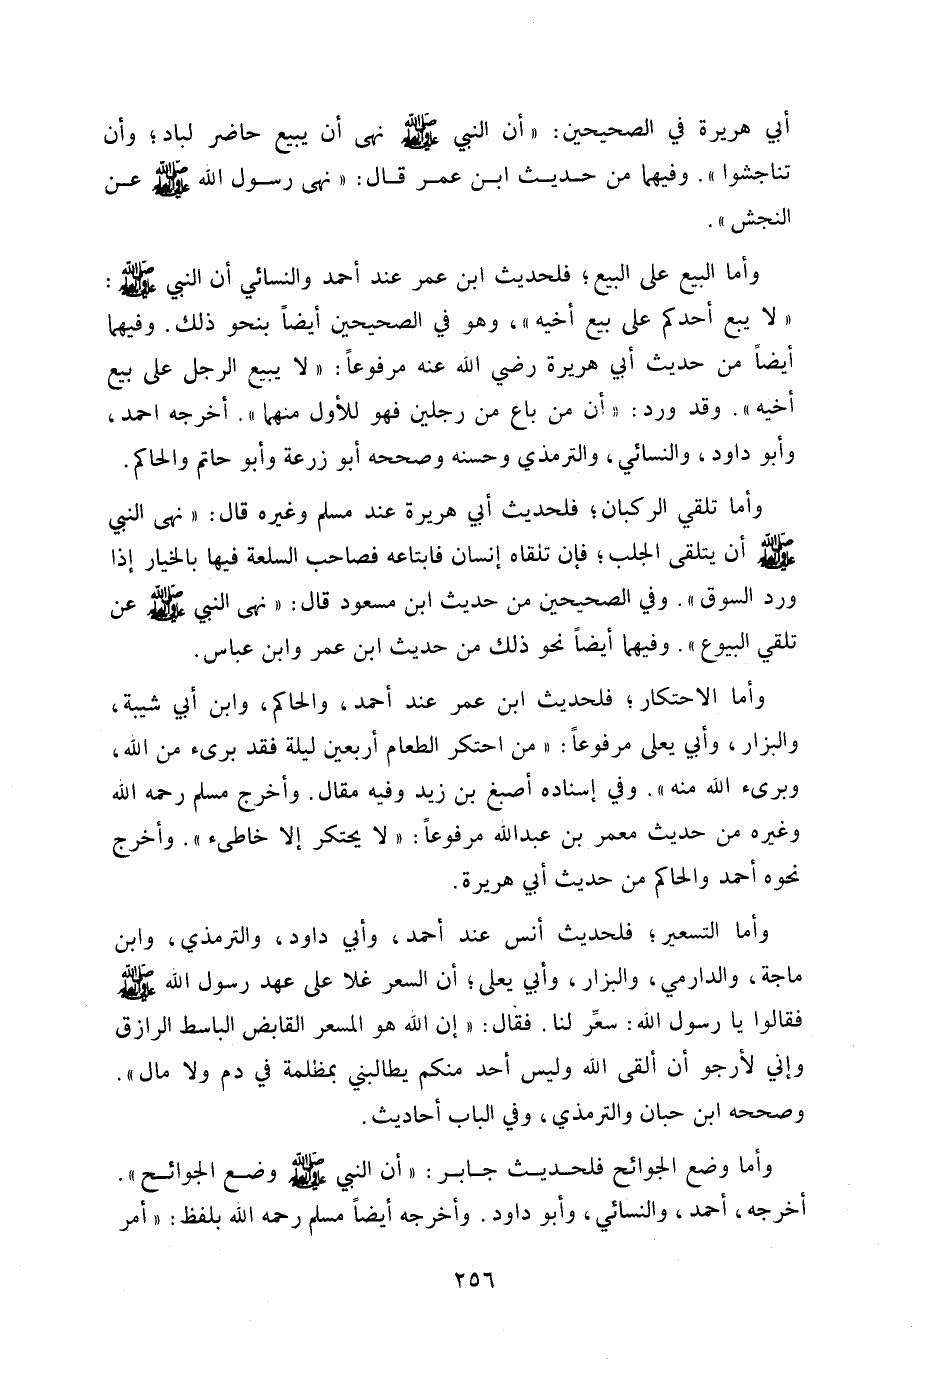 أبي هريرة في الصحيحين: « أن النبي ﷺ نهى أن يبيع حاضر لباد؛ وأن
تناجشوا ». وفيهما من حـديـث ابـن عمـر قـال: « نهى رسـول الله ﷺ عـن
النجش ».
وأما البيع على البيع؛ فلحديث ابن عمر عند أحمد والنسائي أن النبي ﷺ :
« لا يبع أحدكم على بيع أخيه »، وهو في الصحيحين أيضاً بنحو ذلك. وفيهما
أيضاً من حديث أبي هريرة رضي الله عنه مرفوعاً: « لا يبيع الرجل على بيع
أخيه ». وقد ورد: « أن من باع من رجلين فهو للأول منهما ». أخرجه احمد،
وأبو داود، والنسائي، والترمذي وحسنه وصححه أبو زرعة وأبو حاتم والحاكم.
وأما تلقي الركبان؛ فلحديث أبي هريرة عند مسلم وغيره قال: « نهى النبي
ﷺ أن يتلقى الجلب؛ فإن تلقاه إنسان فابتاعه فصاحب السلعة فيها بالخيار إذا
ورد السوق ». وفي الصحيحين من حديث ابن مسعود قال: « نهى النبي ﷺ عن
تلقي البيوع ». وفيهما أيضاً نحو ذلك من حديث ابن عمر وابن عباس.
وأما الاحتكار؛ فلحديث ابن عمر عند أحمد، والحاكم، وابن أبي شيبة،
والبزار، وأبي يعلى مرفوعاً: « من احتكر الطعام أربعين ليلة فقد برىء من الله،
وبرىء الله منه ». وفي إسناده أصبغ بن زيد وفيه مقال. وأخرج مسلم رحمه الله
وغيره من حديث معمر بن عبدالله مرفوعاً: « لا يحتكر إلا خاطىء ». وأخرج
نحوه أحمد والحاكم من حديث أبي هريرة.
وأما التسعير؛ فلحديث أنس عند أحمد، وأبي داود، والترمذي، وابن
ماجة، والدارمي، والبزار، وأبي يعلى؛ أن السعر غلا على عهد رسول الله ﷺ
فقالوا يا رسول الله: سعِّر لنا. فقال: « إن الله هو المسعر القابض الباسط الرازق
وإني لأرجو أن ألقى الله وليس أحد منكم يطالبني بمظلمة في دم ولا مال ».
وصححه ابن حبان والترمذي، وفي الباب أحاديث.
وأما وضع الجوائح فلحـديـث جـابـر: « أن النبي ﷺ وضـع الجوائـح ».
أخرجه، أحمد، والنسائي، وأبو داود. وأخرجه أيضاً مسلم رحمه الله بلفظ: « أمر
٢٥٦